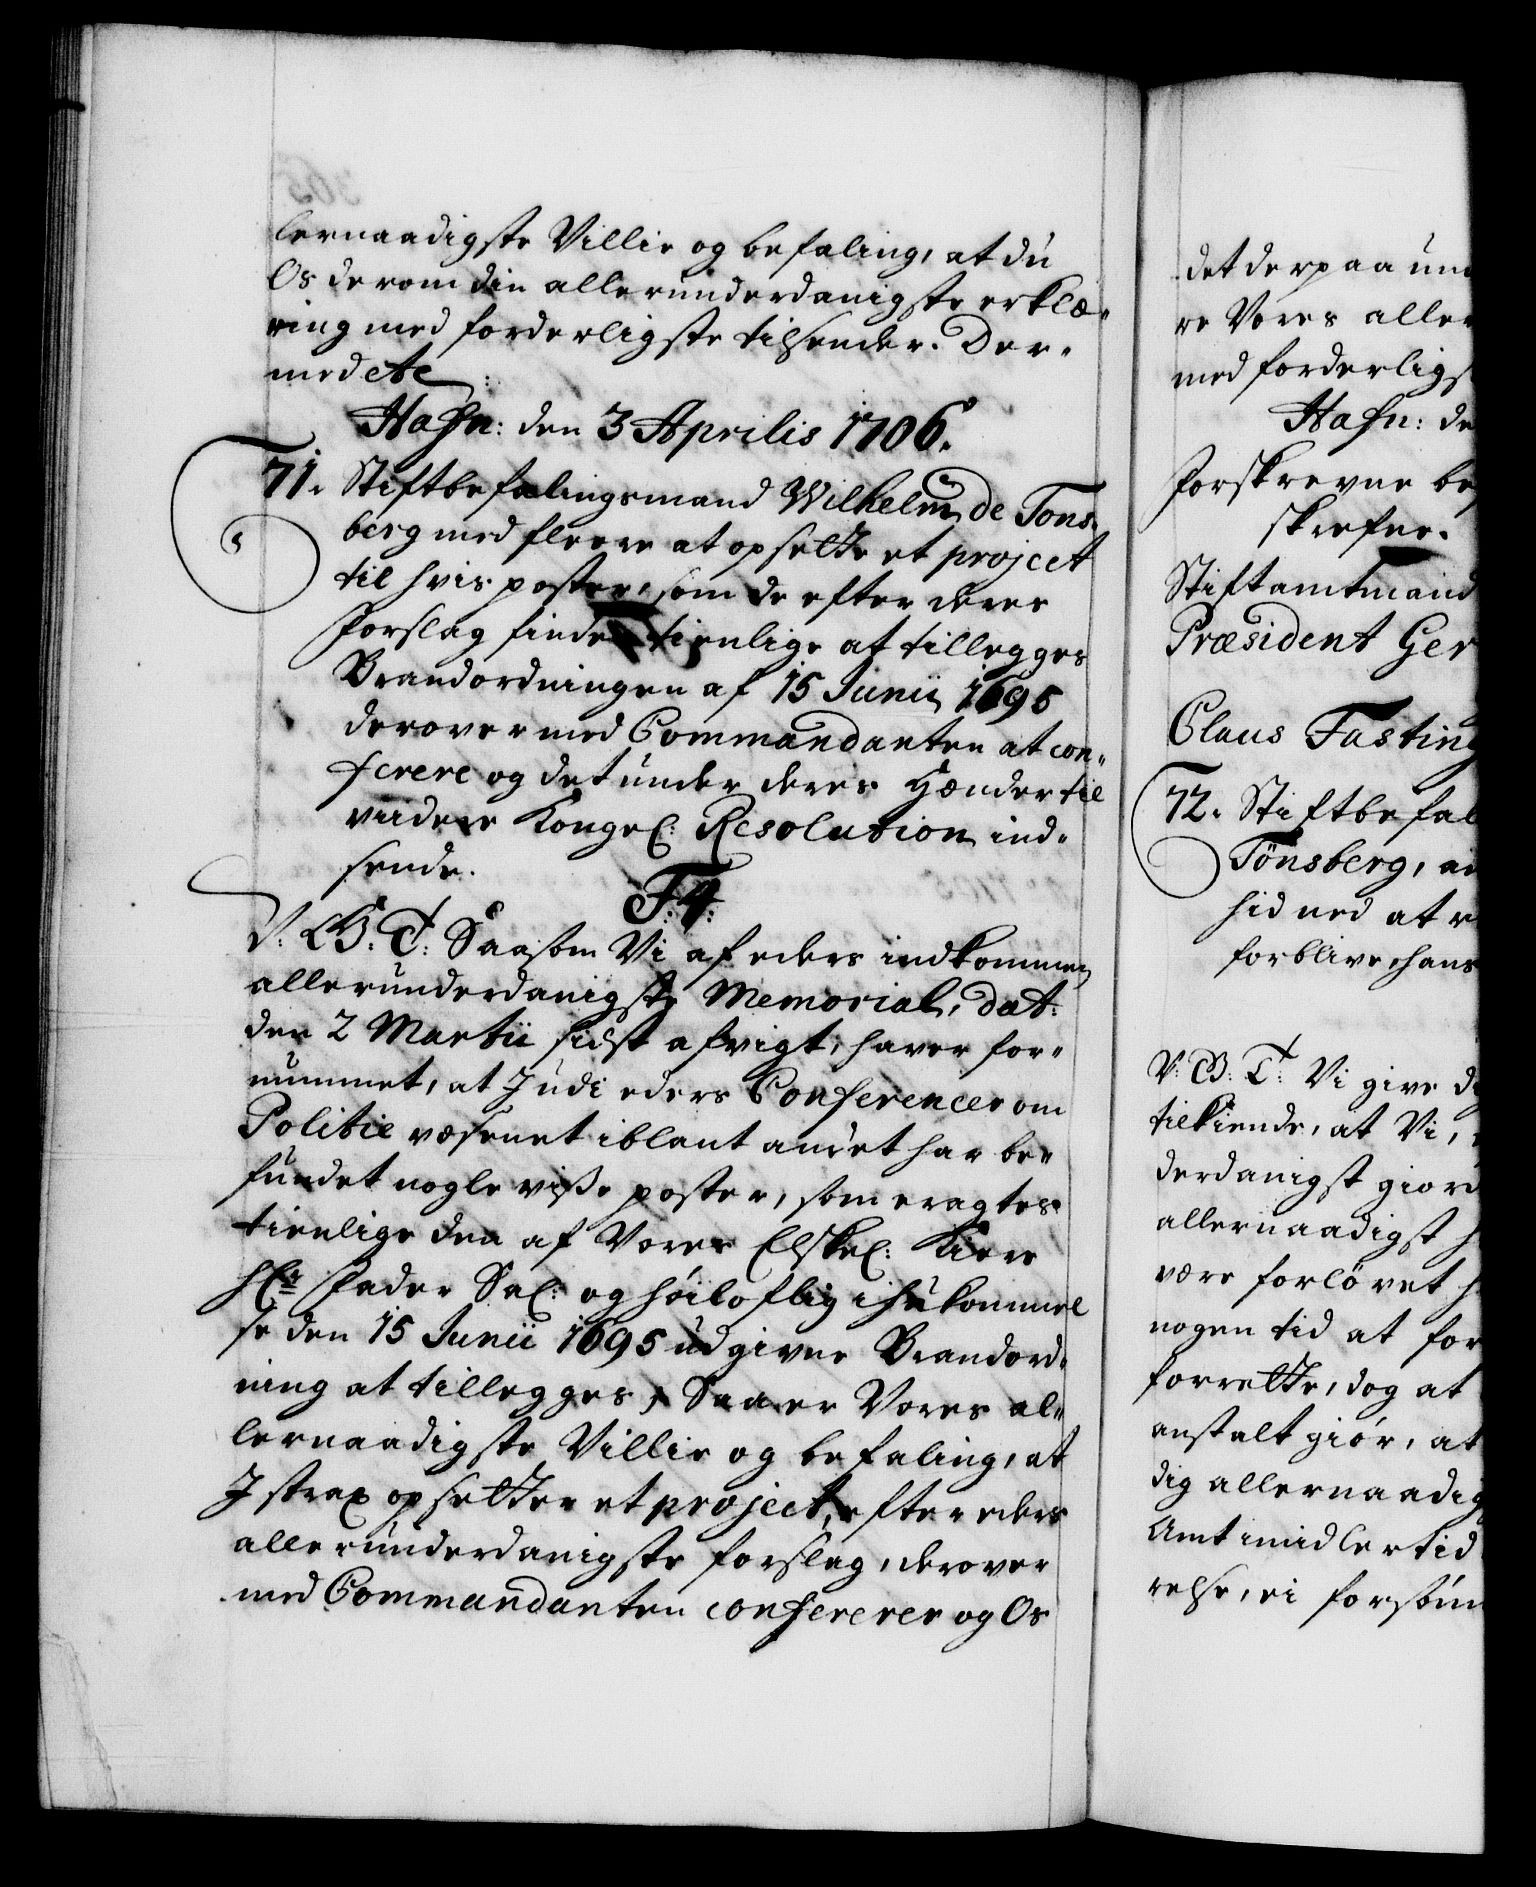 lernaadigste Villie og befaling, at du
Os derom din allerunderdanigste erklæ-
ring med forderligste tilsender. Der-
med etc:
Hafn: den 3 Aprilis 1706.
71. Stiftbefalingsmand Wilhelm de Tons-
berg med fleere at opsette et project
til hvis poster, som de efter deres
Forslag finder tienlige at tillegges
Brandordningen af 15 Junii 1695
derover med Commandanten at con-
ferere og det under deres Hænder til
viidere Kongel: Resolution ind-
sende.
F. 4.
V: G: T: Saasom Vi af eders indkommen
allerunderdanigste Memorial, dat:
den 2 Martii sidst afvigt, haver for-
nummet, at I udi eders Conferencer om
Politie væsenet iblant andet har be-
fundet nogle visse poster, som eragtes
tienlige den af Vores Elskel: Kiere
Hr Fader Sal: og høiloflig ihukommel
se den 15 Junii 1695 udgivne Brandord-
ning at tillegges, Saa er Vores al-
lernaadigste Villie og befaling, at
I strax opsetter et project, efter eders
allerunderdanigste forslag, derover
med Commandanten confererer og Os
det derpaa un
re Vores aller
med forderligs
Hafn: de
Forskrevne be
skrefne.
Stiftamtmand
Præsident Ger
Claus Fasting
72. Stiftbefal
Tønsberg, an
hid ned at r
forblive hans
V: G: T: Vi give d
tilkiende, at Vi,
derdanigst giord
allernaadigst h
være forlovet h
nogen tid at for
forrette, dog at
anstalt giør, at
dig allernaadig
Amt imidlertid
relse, ei forsøm